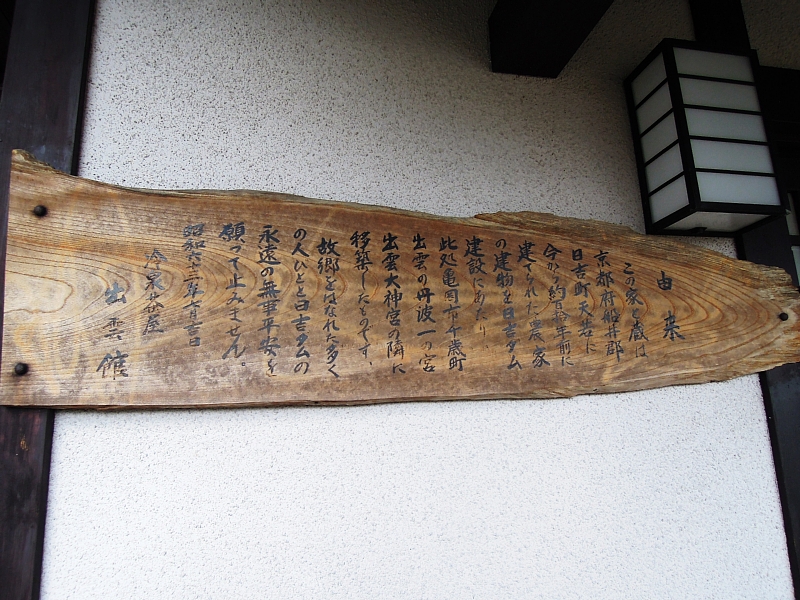 由来
この家と蔵は
京都府船井郡
日吉町天若に
今から約百年前に
建てられた農家
の建物を日吉ダム
建設にあたり、
此処亀岡市千歳町
出雲の丹波一の宮
出雲大神宮の隣に
移築したものです。
故郷をはなれた多く
の人びとと日吉ダムの
永遠の無事平安を
願って止みません。
昭和六十二年
冷泉茶屋
出雲館